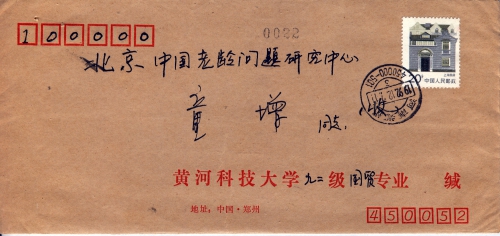 0022
100000
北京 中国老龄问题研究中心
20分
中国人民邮政
童 增 同志 收
黄河科技大学九二级国贸专业 缄
地址:中国·郑州
450052